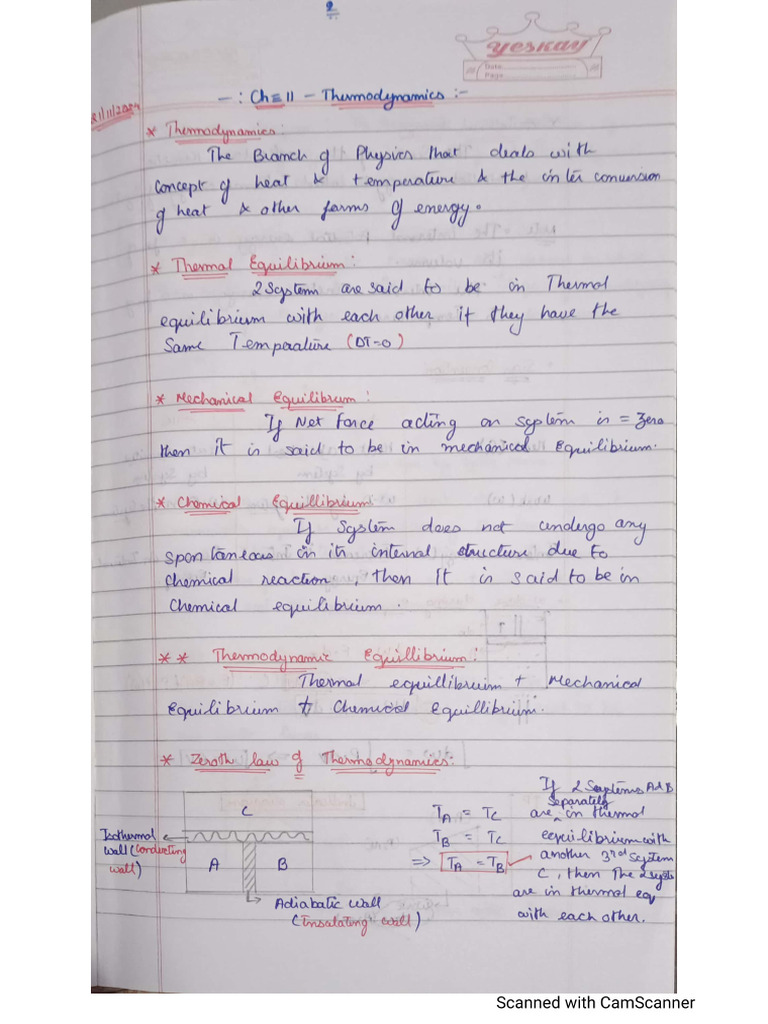 2
yeskay
Date:
Page:
-: Ch ≡ 11 - Thermodynamics :-
/11/2024
* Thermodynamics:
The Branch of Physics that deals with
concept of heat & temperature & the inter conversion
of heat & other forms of energy.
* Thermal Equilibrium:
2 System are said to be in Thermal
equilibrium with each other if they have the
Same Temperature (DT=0)
* Mechanical Equilibrum:
If Net Force acting on System is = Zero
then it is said to be in mechanical Equilibrium.
* Chemical Equillibrium:
If System does not undergo any
spontaneous in its internal structure due to
Chemical reaction, then it is said to be in
Chemical equilibrium.
* * Thermodynamic Equillibrium:
Thermal equillibruim + Mechanical
Equilibrium + Chemical equillibrium.
* Zeroth law of Thermodynamics:
C
A B
Isothermal
wall (conducting
wall)
Adiabatic Wall
(Insulating wall)
TA = TC
TB = TC
=> TA = TB
If 2 Systems A & B
are separately in thermal
equilibrium with
another 3rd System
C, then The 2 syste
are in thermal eq
with each other.
Scanned with CamScanner